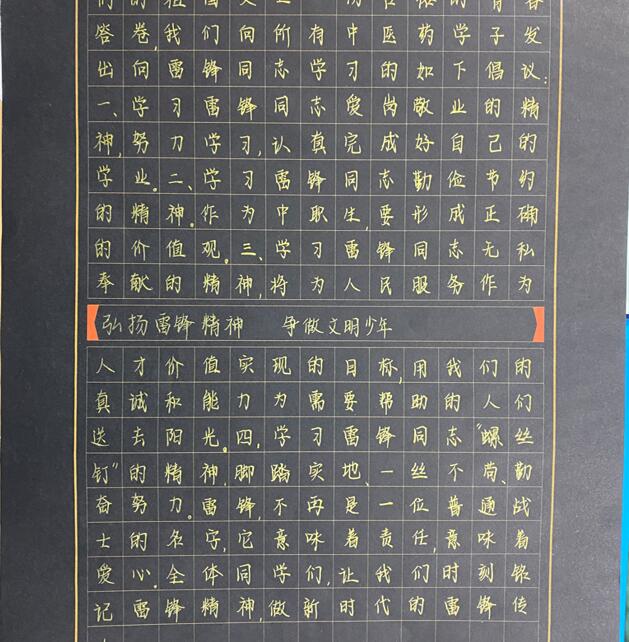 答卷,我们向所有中医药学子发
出向雷锋同志学习的如下倡议:
一、学习雷锋同志爱岗敬业的精
神,努力学习,认真完成好自己的
学业。二、学习雷锋同志勤俭节约
的精神。作为中职生,要形成正确
的价值观。三、学习雷锋同志无私
奉献的精神,将为人民服务作为
弘扬雷锋精神 争做文明少年
人才价值实现的目标,用我们的
真诚和能力为需要帮助的人们
送去阳光。四,学习雷锋同志“螺丝
钉”的精神,脚踏实地、一丝不苟、勤
奋努力。雷锋,不再是一位普通战
士的名字,它意味着责任,意味着
爱心。全体同学们,让我们时刻铭
记雷锋精神,做新时代的雷锋传